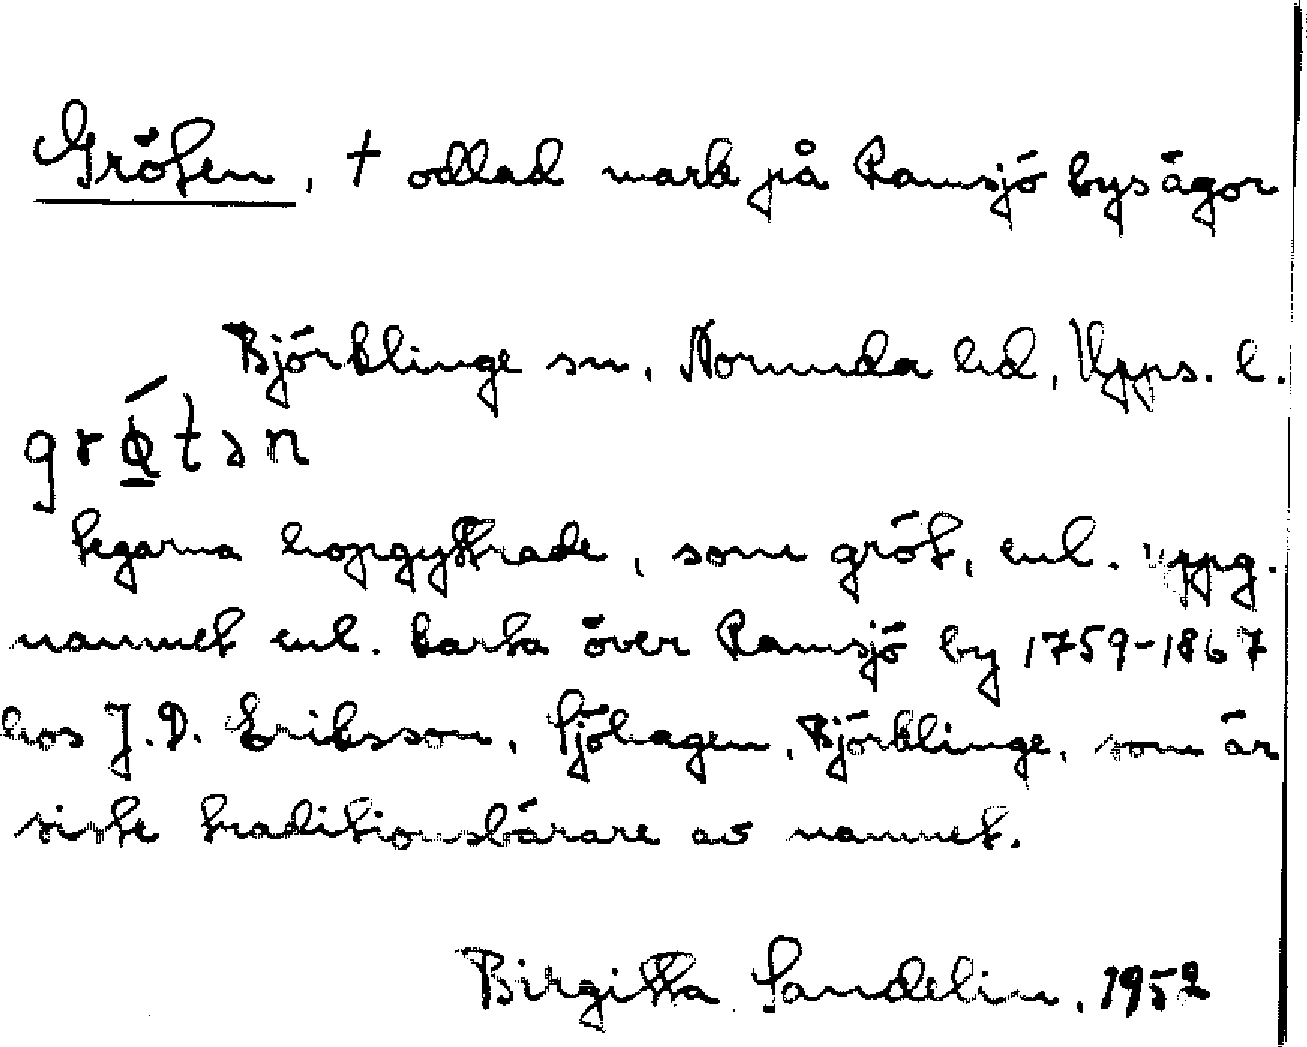 Gröten, † odlad mark på Ramsjö bysägor
Björklinge sn, Norunda hd, Upps. l.
grǿ̱tən
tegarna hopgyttrade, som gröt, enl. uppg.
namnet enl. karta över Ramsjö by 1759-1867
hos J.D. Eriksson, Sjöhagen, Björklinge, som är
siste traditionsbärare av namnet.
Birgitta Sandelin, 1952